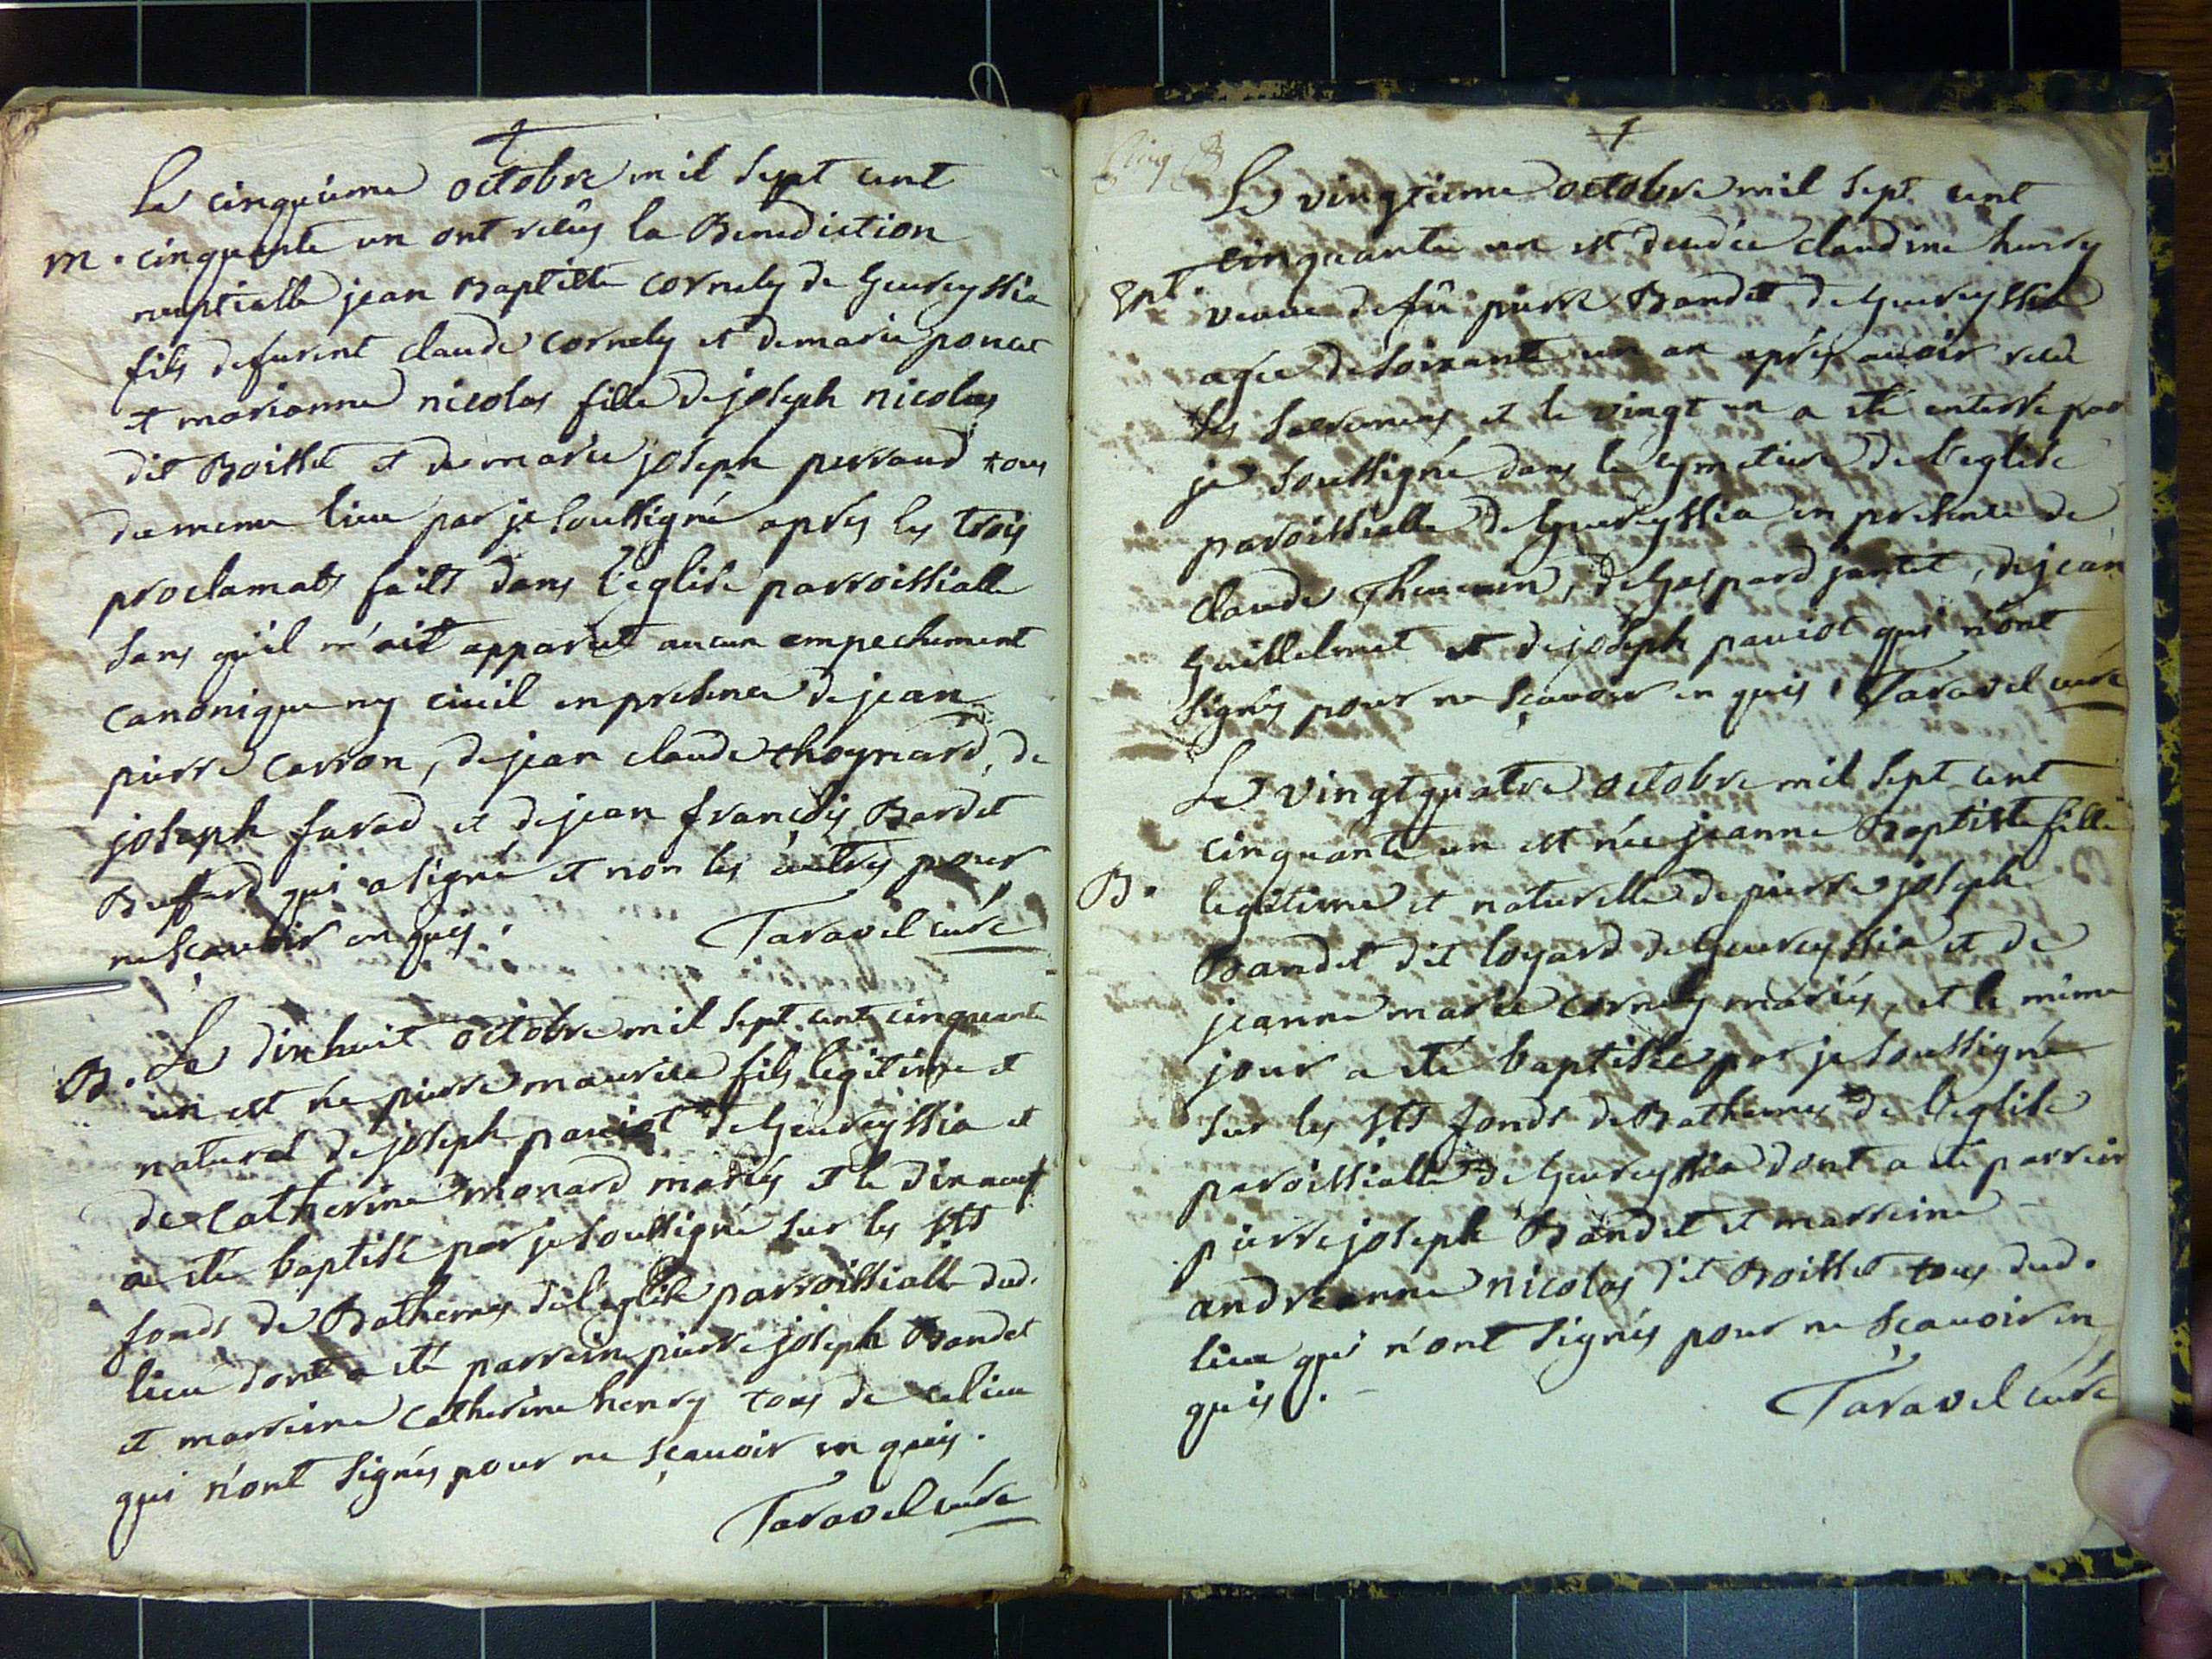 Le cinquieme octobre mil sept cent
m. cinquante un ont reçûs la Benediction
nuptialle jean Baptiste cornely de Geureyssia
fils defurent claude cornely et demarie poncet
et marianne nicolas fille de joseph nicolas
dit Boisset et de marie joseph perraud tous
du meme lieu par je soussigné aprés les trois
proclamats faits dans l'eglise parroissialle
sans qu'il m'ait apparut aucun empechement
canonique ny civil en presence de jean
pierre carron, de jean claude thoynard, de
joseph favad et de jean françois Bardet
Buffard qui a signé et non les autres pour
ne sçauoir en quis. Taravel curé
Le dixhuit octobre mil sept cent cinquante
B. un est né pierre maurice fils legitime et
naturel de joseph pauiot de Geureyssia et
de Catherine monard mariés et le dixneuf
a eté baptisé par je soussigné sur les sts
fonds de Bathemes de l'eglise parroissialle dud.
lieu dont a eté parrein pierre joseph Bandet
et marreine Catherine henry tous de ce lieu
qui n'ont signés pour ne sçauoir en quis.
Taravel curé
Le vingtieme octobre mil sept cent
cinquante un est decedée claudine henry
veuue de fû pierre Bandet de Geureyssia
agée de soixante un an aprés auoir recu
les sacremens et le vingt un a eté enterré par
je soussigné dans le cymetiere de l'eglise
paroissialle de Geureyssia en presence de
claude Theuenin, de Gaspard jantet, de jean
Guillelmet et de joseph pauiot qui n'ont
signés pour ne sçauoir en quis. Taravel curé
Le vingtquatre octobre mil sept cent
cinquante un est née jeanne Baptiste fille
B. legitime et naturelle de pierre joseph
Bandet dit loyard de Geureyssia et de
jeanne marie cornely mariés, et le même
jour a eté baptisée par je soussigné
sur les sts fonds de Bathemes de l'eglise
paroissialle de Geureyssia dont a eté parrein
pierre joseph Bandet et marreine
andréanne nicolas dit Boisset tous dud.
lieu qui n'ont signés pour ne sçauoir en
quis. Taravel curé